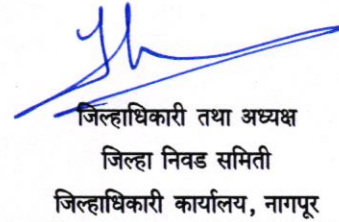 जिल्हाधिकारी तथा अध्यक्ष
जिल्हा निवड समिती
जिल्हाधिकारी कार्यालय, नागपूर